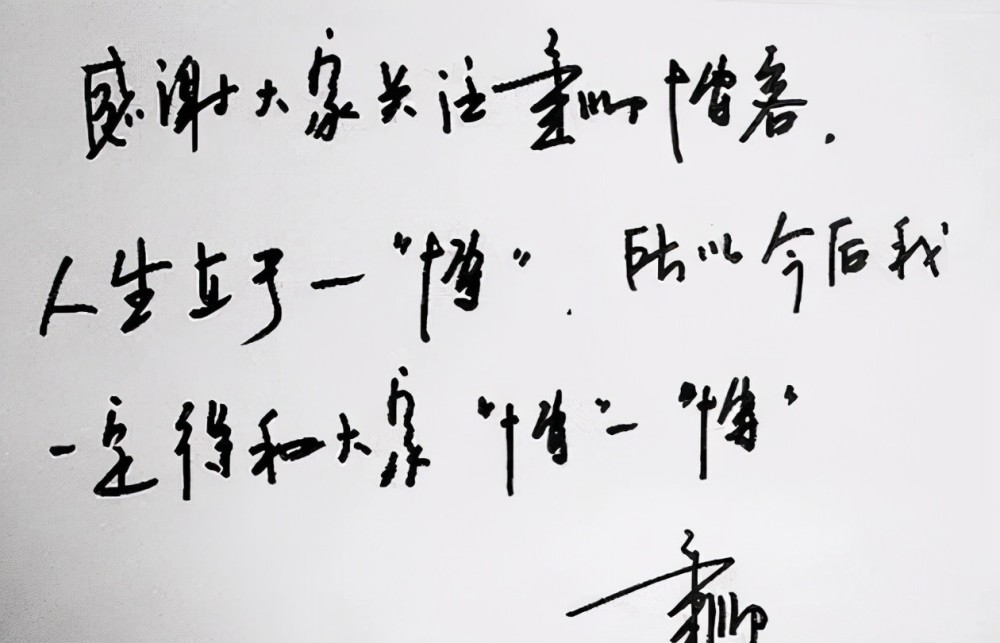 感谢大家关注董卿博客.
人生立于一“博”. 所以今后我
一定得和大家“博”一“博”
董卿